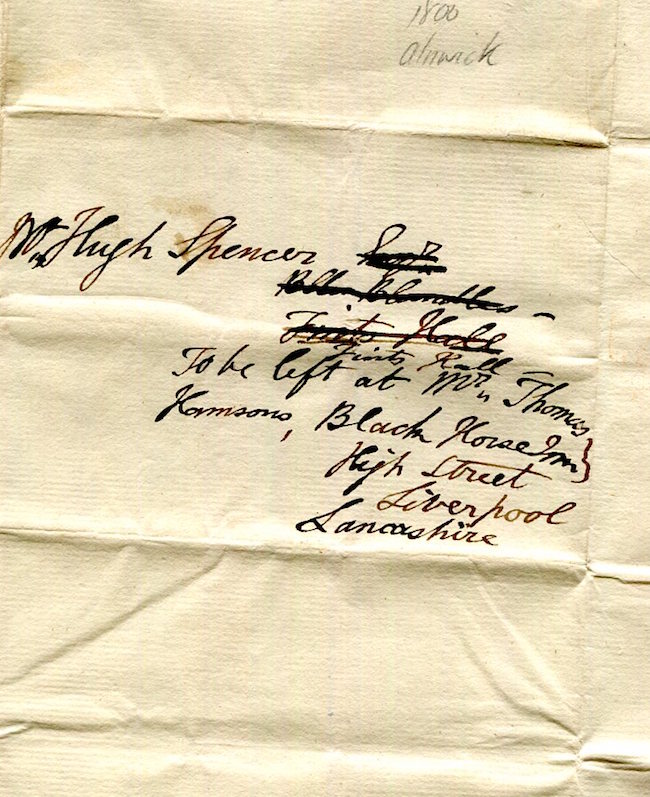 1800
Alnwick
Mr. Hugh Spencer
Firsts Hall
To be left at Mr. Thomas
Hamsons, Black Horse Inn }
High Street
Liverpool
Lancashire